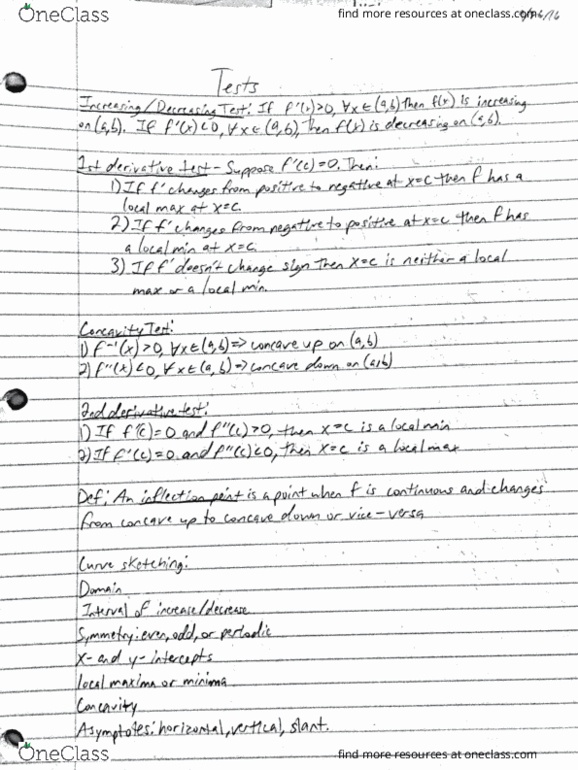 OneClass
find more resources at oneclass.com
Tests
Increasing/Decreasing Test: If f'(x)>0, ∀x∈(a,b) then f(x) is increasing
on (a,b). If f'(x)<0, ∀x∈(a,b), then f(x) is decreasing on (a,b).
1st derivative test - Suppose f'(c)=0. Then:
1) If f' changes from positive to negative at x=c then f has a
local max at x=c.
2) If f' changes from negative to positive at x=c then f has
a local min at x=c.
3) If f' doesn't change sign then x=c is neither a local
max or a local min.
Concavity Test:
1) f''(x)>0, ∀x∈(a,b) => concave up on (a,b)
2) f''(x)<0, ∀x∈(a,b) => concave down on (a,b)
2nd derivative test:
1) If f'(c)=0 and f''(c)>0, then x=c is a local min
2) If f'(c)=0 and f''(c)<0, then x=c is a local max
Def: An inflection point is a point when f is continuous and changes
from concave up to concave down or vice-versa
Curve sketching:
Domain
Interval of increase/decrease
Symmetry: even, odd, or periodic
x- and y- intercepts
local maxima or minima
Concavity
Asymptotes: horizontal, vertical, slant.
OneClass
find more resources at oneclass.com